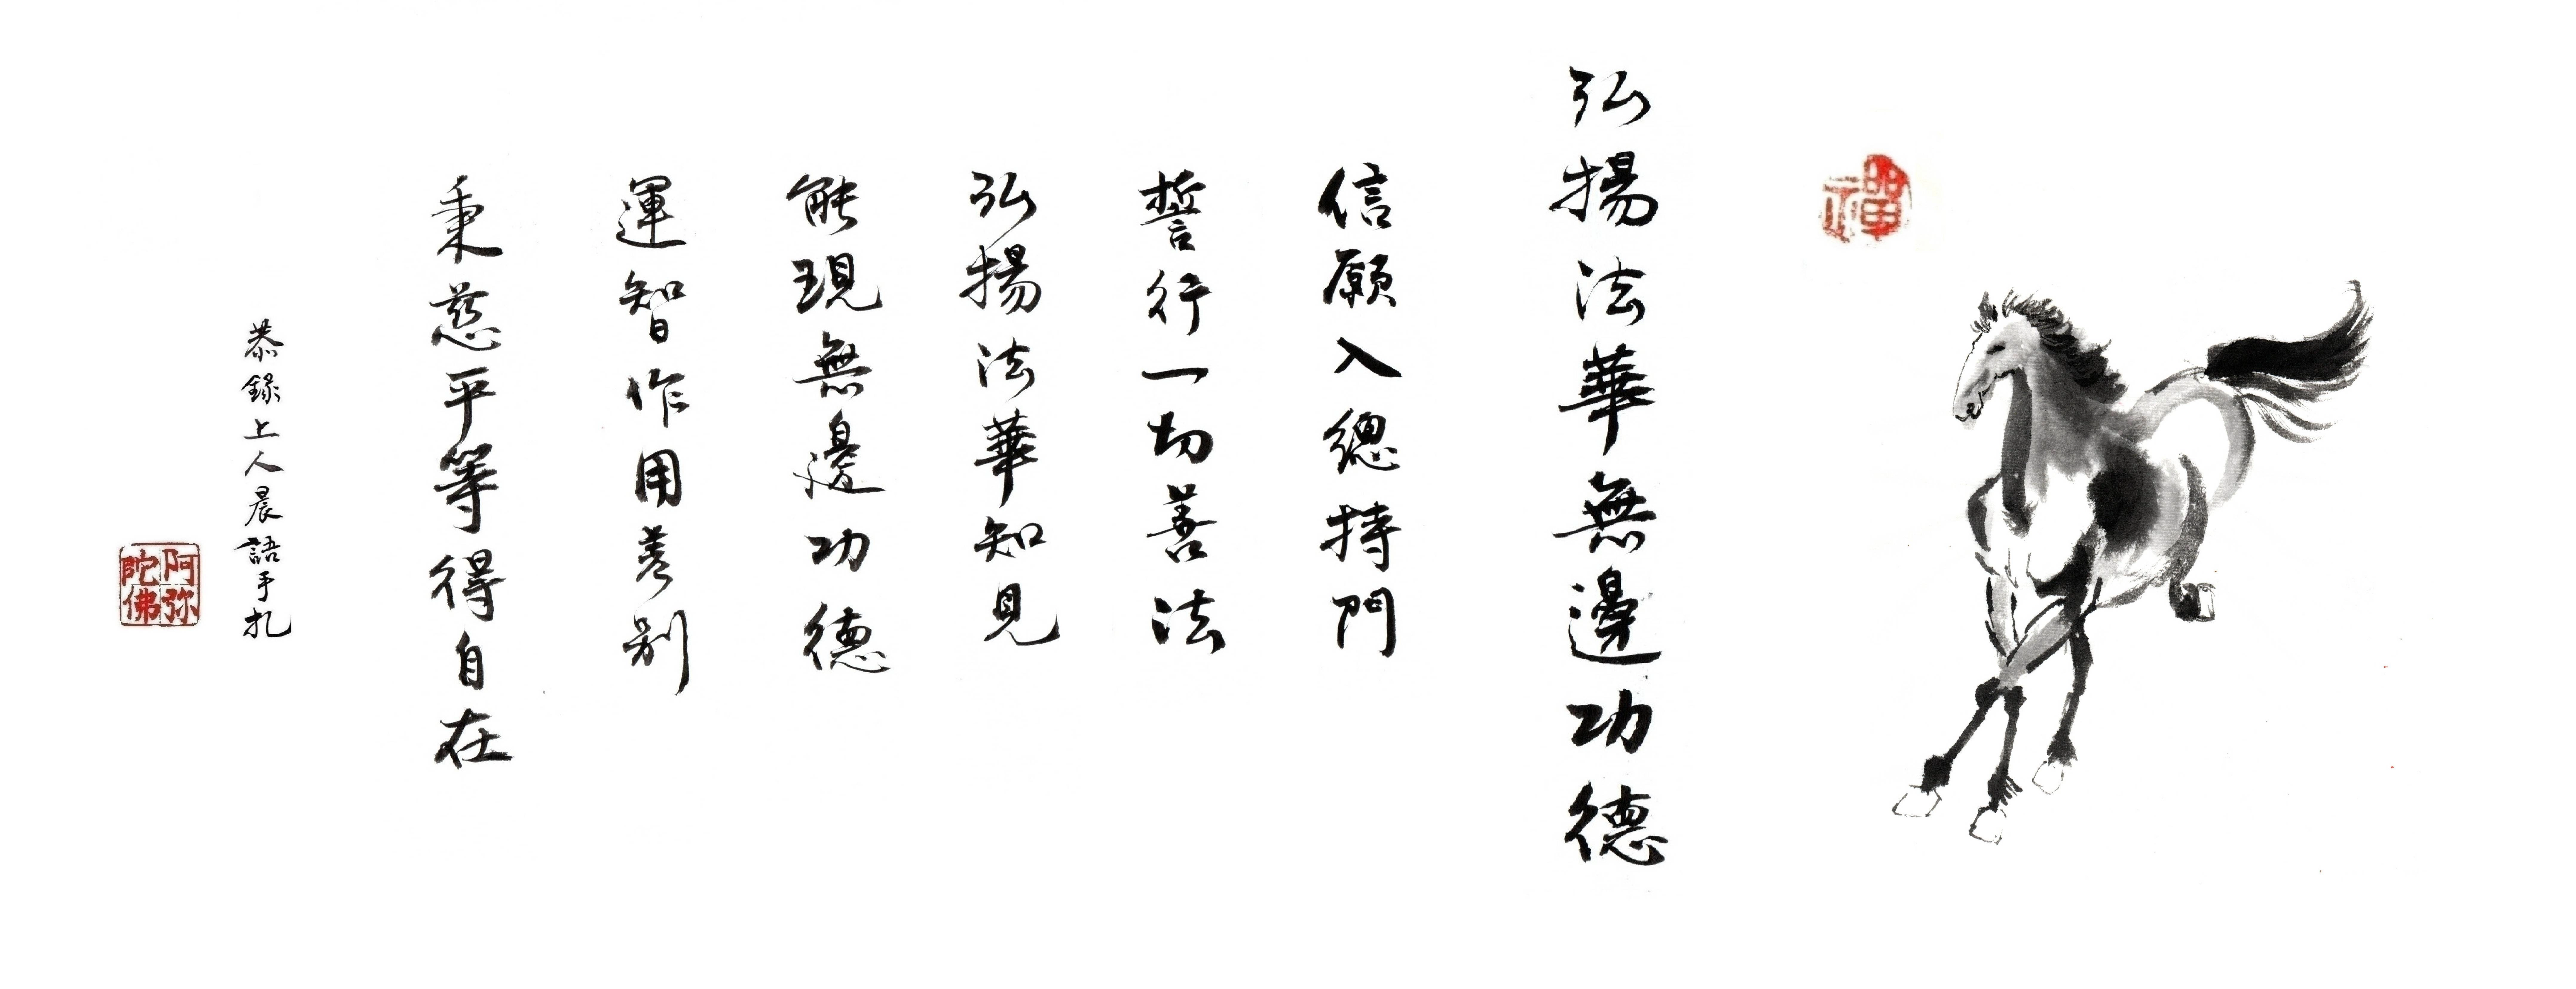 禪
弘揚法華無邊功德
信願入總持門
誓行一切善法
弘揚法華知見
能現無邊功德
運智作用差別
秉慈平等得自在
恭錄上人晨語手札
阿弥
陀佛